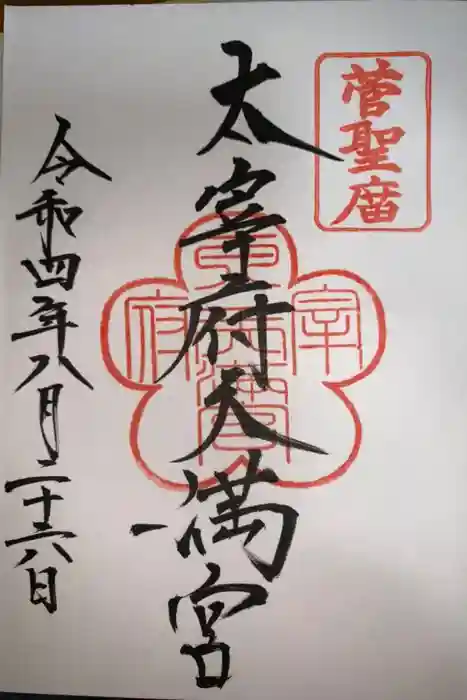 菅聖庿
太宰府天満宮
令和四年八月二十六日